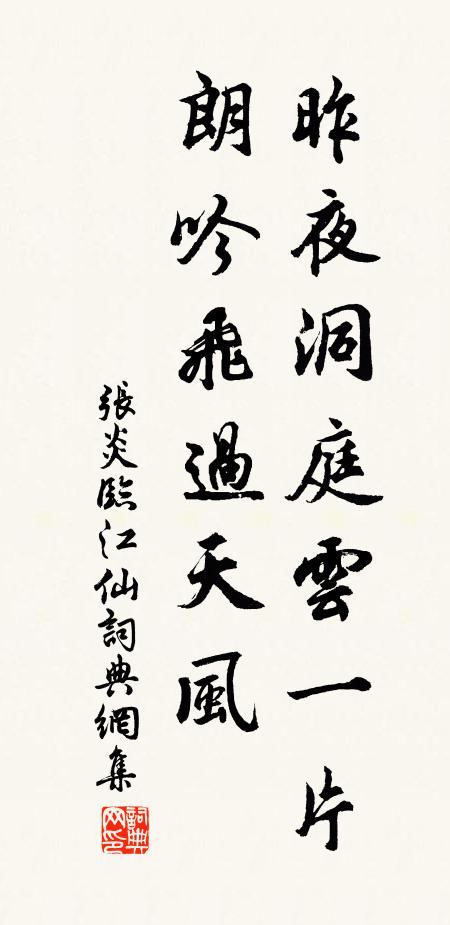 昨夜洞庭雲一片
朗吟飛過天風
張炎臨江仙詞典網集
詞典网印